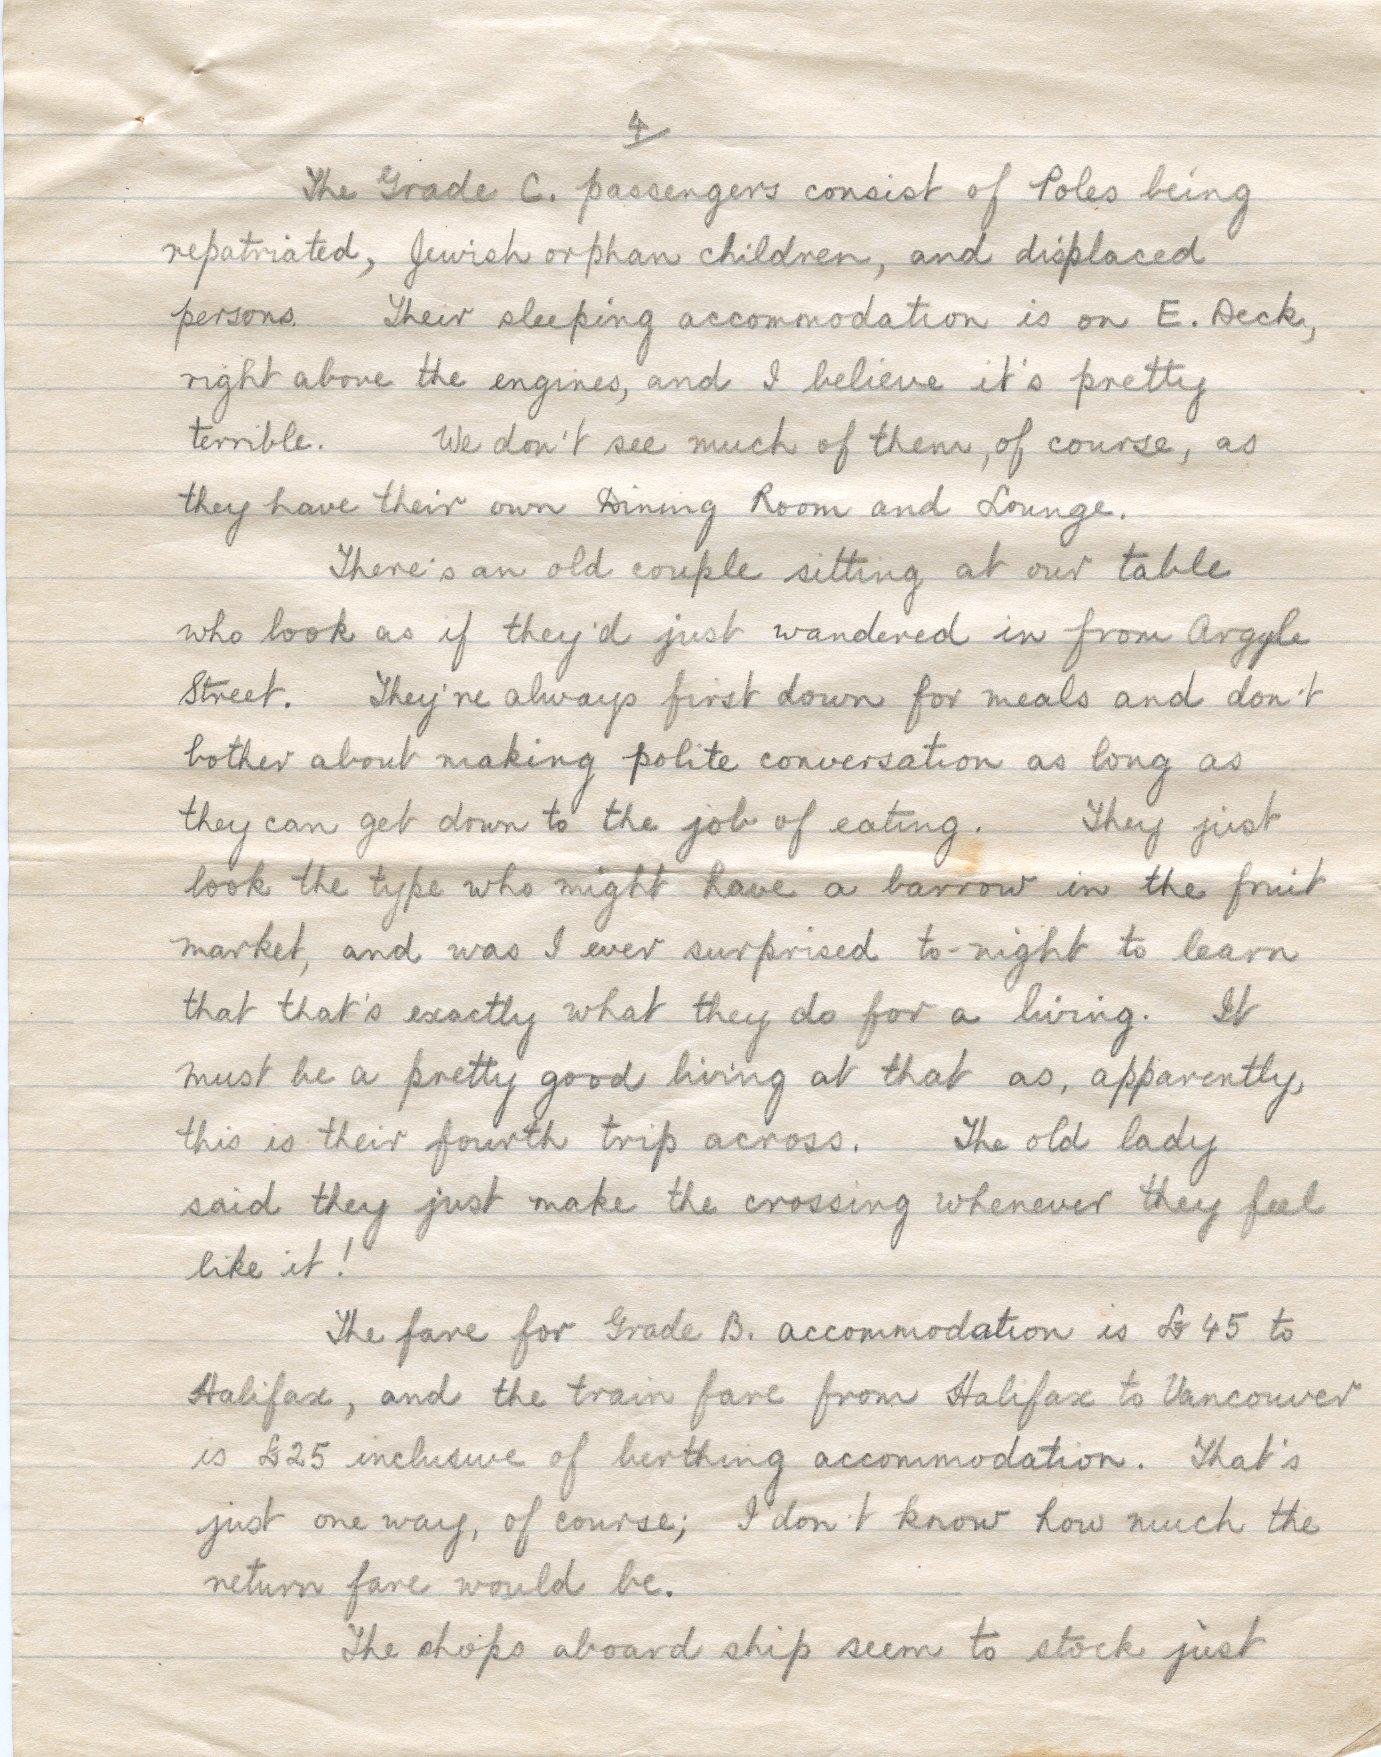 4
The Grade C. passengers consist of Poles being
repatriated, Jewish orphan children, and displaced
persons. Their sleeping accommodation is on E. Deck,
right above the engines, and I believe it's pretty
terrible. We don't see much of them, of course, as
they have their own Dining Room and Lounge.
There's an old couple sitting at our table
who look as if they'd just wandered in from Argyle
Street. They're always first down for meals and don't
bother about making polite conversation as long as
they can get down to the job of eating. They just
look the type who might have a barrow in the fruit
market, and was I ever surprised to-night to learn
that that's exactly what they do for a living. It
must be a pretty good living at that as, apparently,
this is their fourth trip across. The old lady
said they just make the crossing whenever they feel
like it!
The fare for Grade B. accommodation is £45 to
Halifax, and the train fare from Halifax to Vancouver
is £25 inclusive of berthing accommodation. That's
just one way, of course; I don't know how much the
return fare would be.
The shops aboard ship seem to stock just